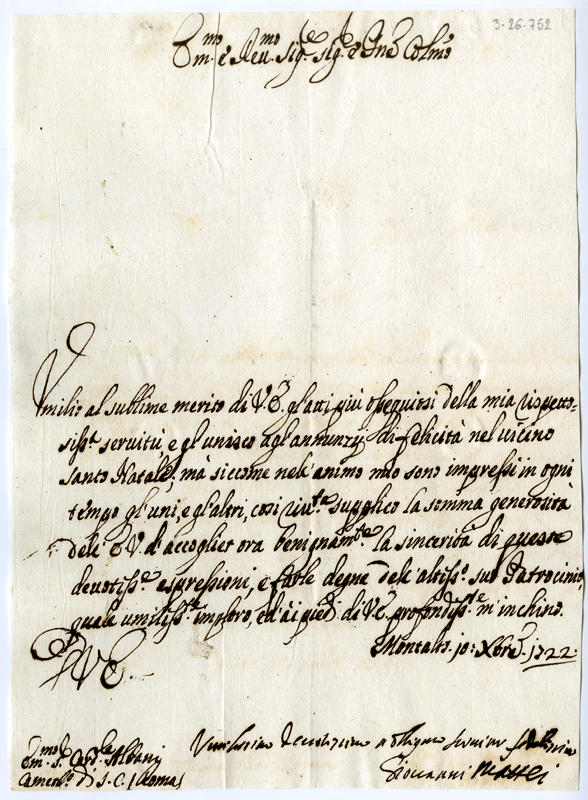 3-26-752
Em.mo e Reu.mo Sig.re Sig.re e Pne Colmo
Vmilio al sublime merito di V.E. gl'atti più ossequiosi della mia rispetto-
siss.a seruitù e gl'unisco agl'annunzij di felicità nel uicino
santo Natale; mà siccome nell'animo mio sono impressi in ogni
tempo gl'uni, e gl'altri, così riu.te supplico la somma generosità
dell'E.V. d'accoglier ora benignam.te la sincerità di queste
deuotiss.e espressioni, e farle degne dell'altiss.o suo Patrocinio,
quale umiliss.te imploro, ed a i piedi di V.E. profondiss.te m'inchino.
Montalto 10: Xbre 1722
V.E.
Em.mo S.r Card.le Albani
Camerl.o di S.C.
Giovanni Mattei